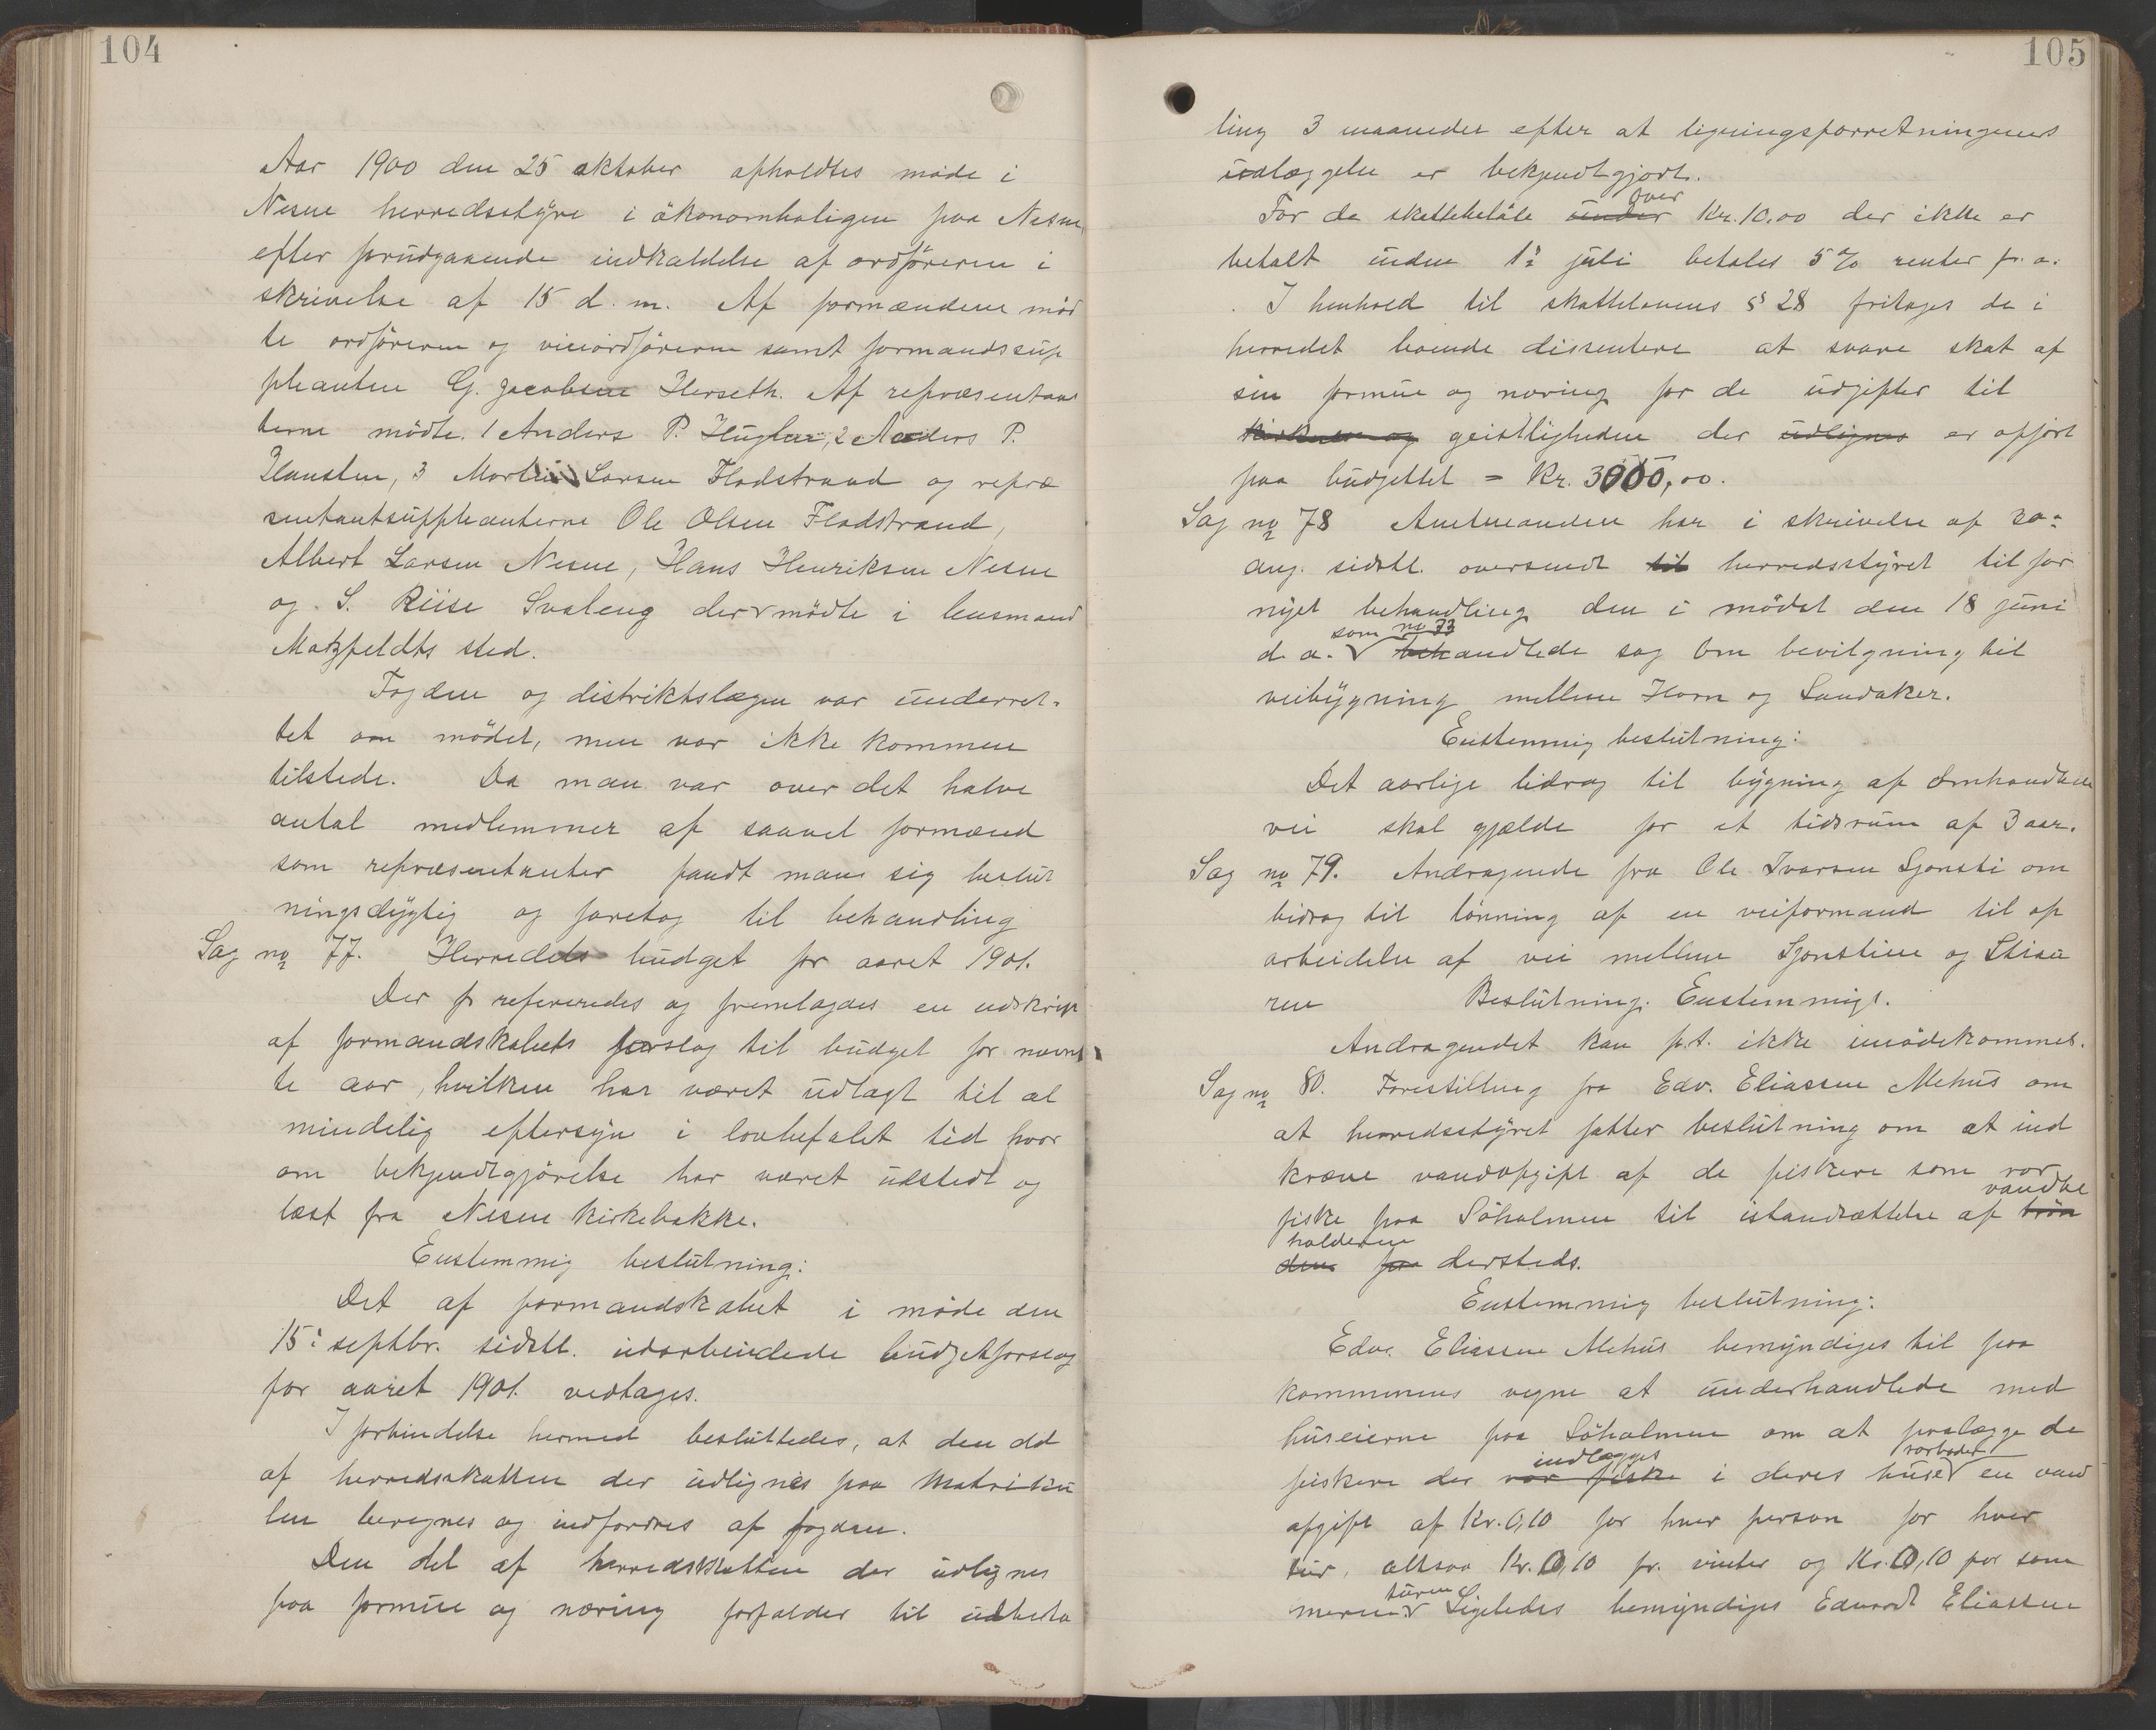 104
Aar 1900 den 25 oktober afholdtes møde i
Nesne herredsstyre i økonomboligen paa Nesne,
efter forudgaaende indkaldelse af ordføreren i
skrivelse af 15 d. m. Af formændene mød
te ordføreren og viceordføreren samt formandssup
pleanten G. Jacobsen Herseth. Af repræsentan
terne mødte. 1 Anders P. Huglen, 2 Anders P.
Hansen, 3 Martin Larsen Flodstrand og repræ
sentantsuppleanterne Ole Olsen Flodstrand,
Albert Larsen Nesne, Hans Henriksen Nesne
og S. Riise Svaleng der mødte i lensmand
Motzfeldts sted.
Fogden og distriktslægen var underret-
tet om mødet, men var ikke kommen
tilstede. Da man var over det halve
antal medlemmer af saavel formænd
som repræsentanter fandt man sig beslut
ningsdygtig og foretog til behandling
Sag no 77. Herredets budget for aaret 1901.
Der refereredes og fremlagdes en udskrift
af formandskabets forslag til budget for nævn
te aar, hvilken har været udlagt til al
mindelig eftersyn i lovbefalet tid hvor
om bekjendtgjørelse har været udstedt og
læst fra Nesne kirkebakke.
Enstemmig beslutning:
Det af formandskabet i møde den
15: septbr. sidstl. udarbeidede budgetforslag
for aaret 1901. vedtages.
I forbindelse hermed besluttedes, at den del
af herredsskatten der udlignes paa Matriku
len beregnes og indfordres af fogden.
Den del af herredsskatten der udlignes
paa formue og næring forfalder til udbeta
105
ling 3 maaneder efter at ligningsforretningens
udlæggelse er bekjendtgjort.
For de skattebeløb under over Kr. 10,00 der ikke er
betalt inden 1: juli betales 5% renter pr. a.
I henhold til skattelovens § 28 fritages de i
herredet boende dissentere at svare skat af
sin formue og næring for de udgifter til
kirkerne og geistligheden der udlignes er opført
paa budgettet = Kr. 3000,00.
Sag no 78 Amtmanden har i skrivelse af 20:
aug. sidstl. oversendt til herredsstyret til for
nyet behandling den i mødet den 18 juni
d. a. som no 73 behandlede sag om bevilgning til
veibygning mellem Horn og Sandaker.
Enstemmig beslutning:
Det aarlige bidrag til bygning af omhandlede
vei skal gjælde for et tidsrum af 3 aar.
Sag no 79. Andragende fra Ole Ivarsen Sjonsti om
bidrag til lønning af en veiformand til op
arbeidelse af vei mellem Sjonstien og Stien
ren Beslutning. Enstemmigt.
Andragendet kan p.t. ikke imødekommes.
Sag no 80. Forestilling fra Edv. Eliassen Mehus om
at herredsstyret fatter beslutning om at ind
kræve vandafgift af de fiskere som ror
fiske paa Søholmen til istandsættelse af brøn vandbe
den holderen paa dersteds.
Enstemmig beslutning:
Edv. Eliassen Mehus bemyndiges til paa
kommunens vegne at underhandlede med
huseierne paa Søholmen om at paalægge de
fiskere der ror fiske indlogges i deres huse rorboder en vand
afgift af Kr. 0,10 for hver person for hver
tur, altsaa Kr. 0,10 pr. vinter og Kr. 0,10 for som
meren turen Ligeledes bemyndiges Edvard Eliassen